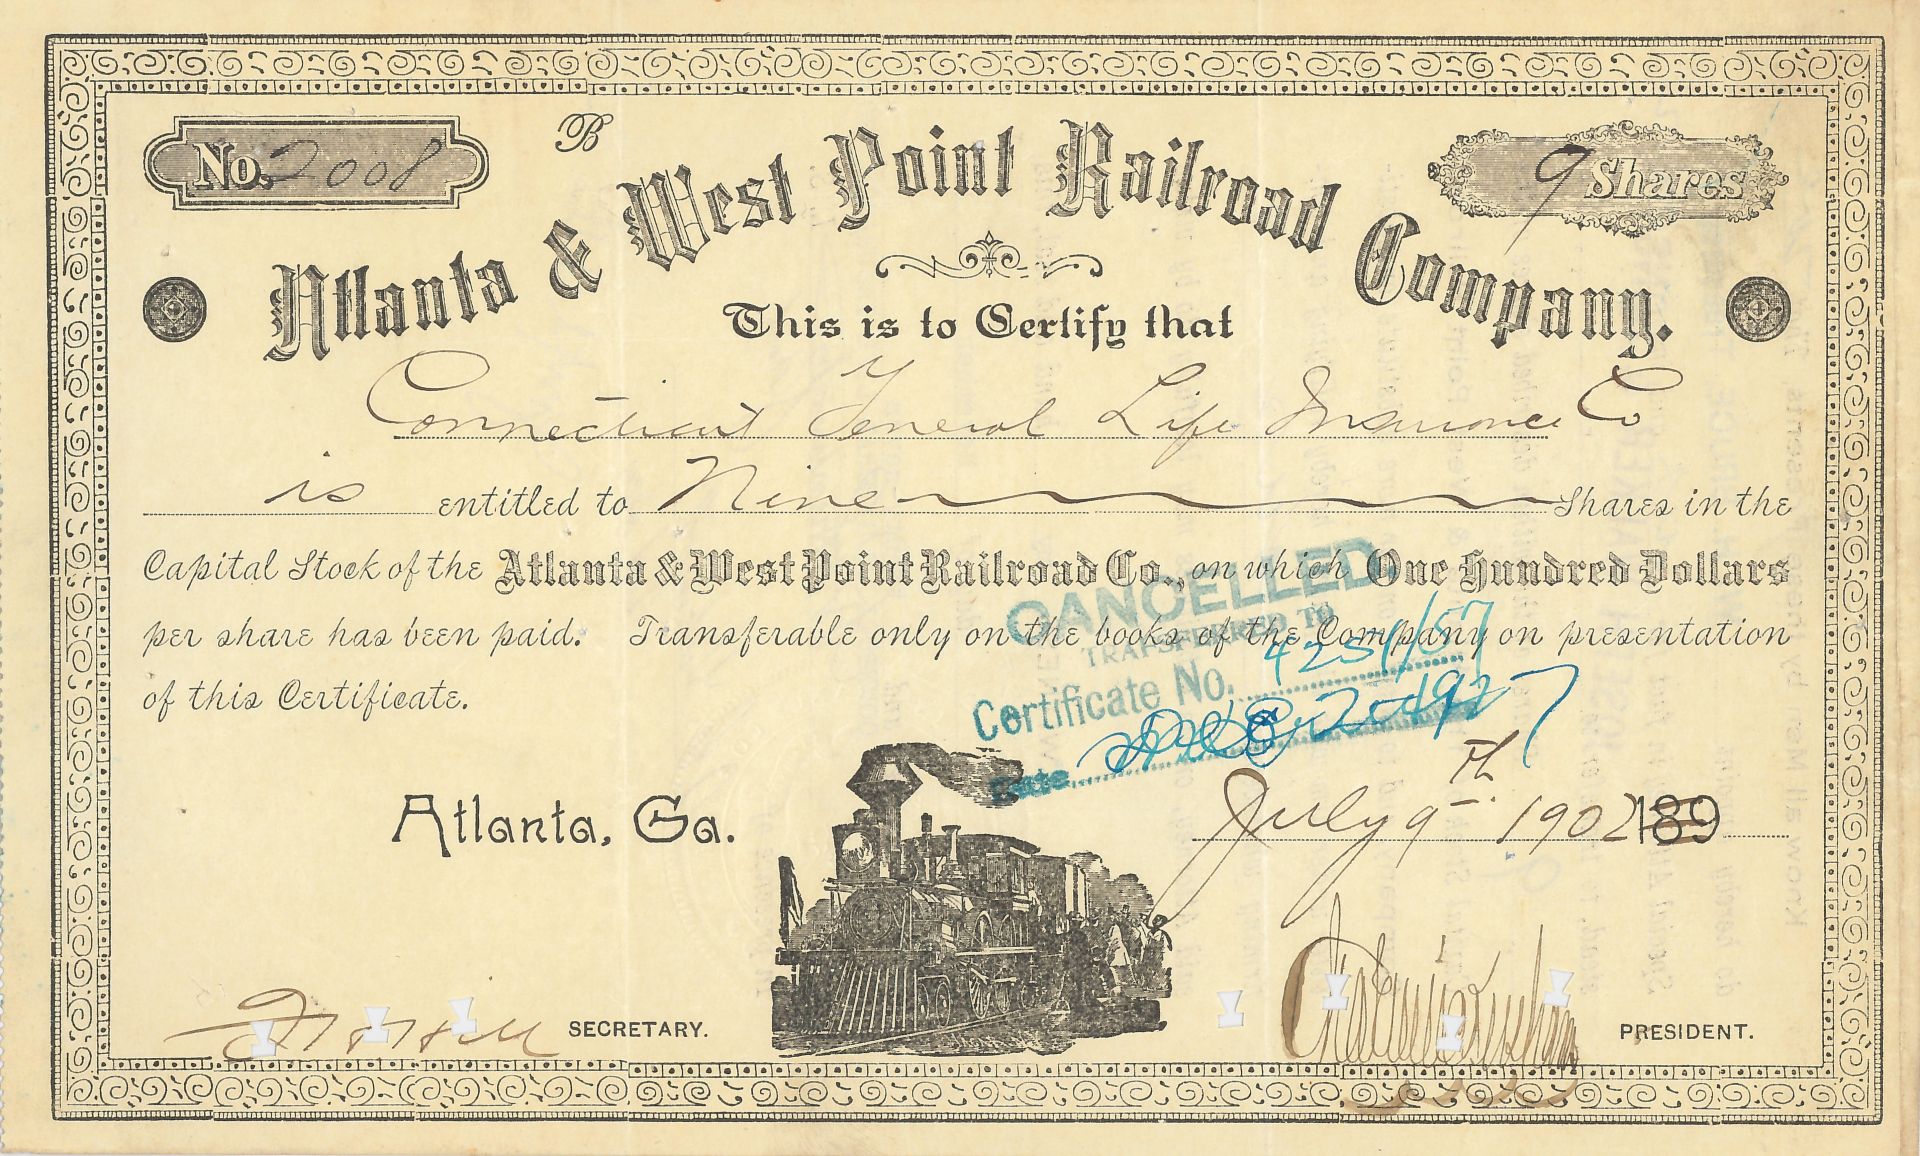 No. 2008
B
9 Shares
Atlanta & West Point Railroad Company.
This is to Certify that
Connecticut General Life Insurance Co
is entitled to Nine Shares in the
Capital Stock of the Atlanta & West Point Railroad Co., on which One Hundred Dollars
per share has been paid. Transferable only on the books of the Company on presentation
of this Certificate.
CANCELLED
TRANSFERRED TO
Certificate No.
Date 2-1927
Atlanta, Ga.
July 9th 1902 189
SECRETARY.
PRESIDENT.